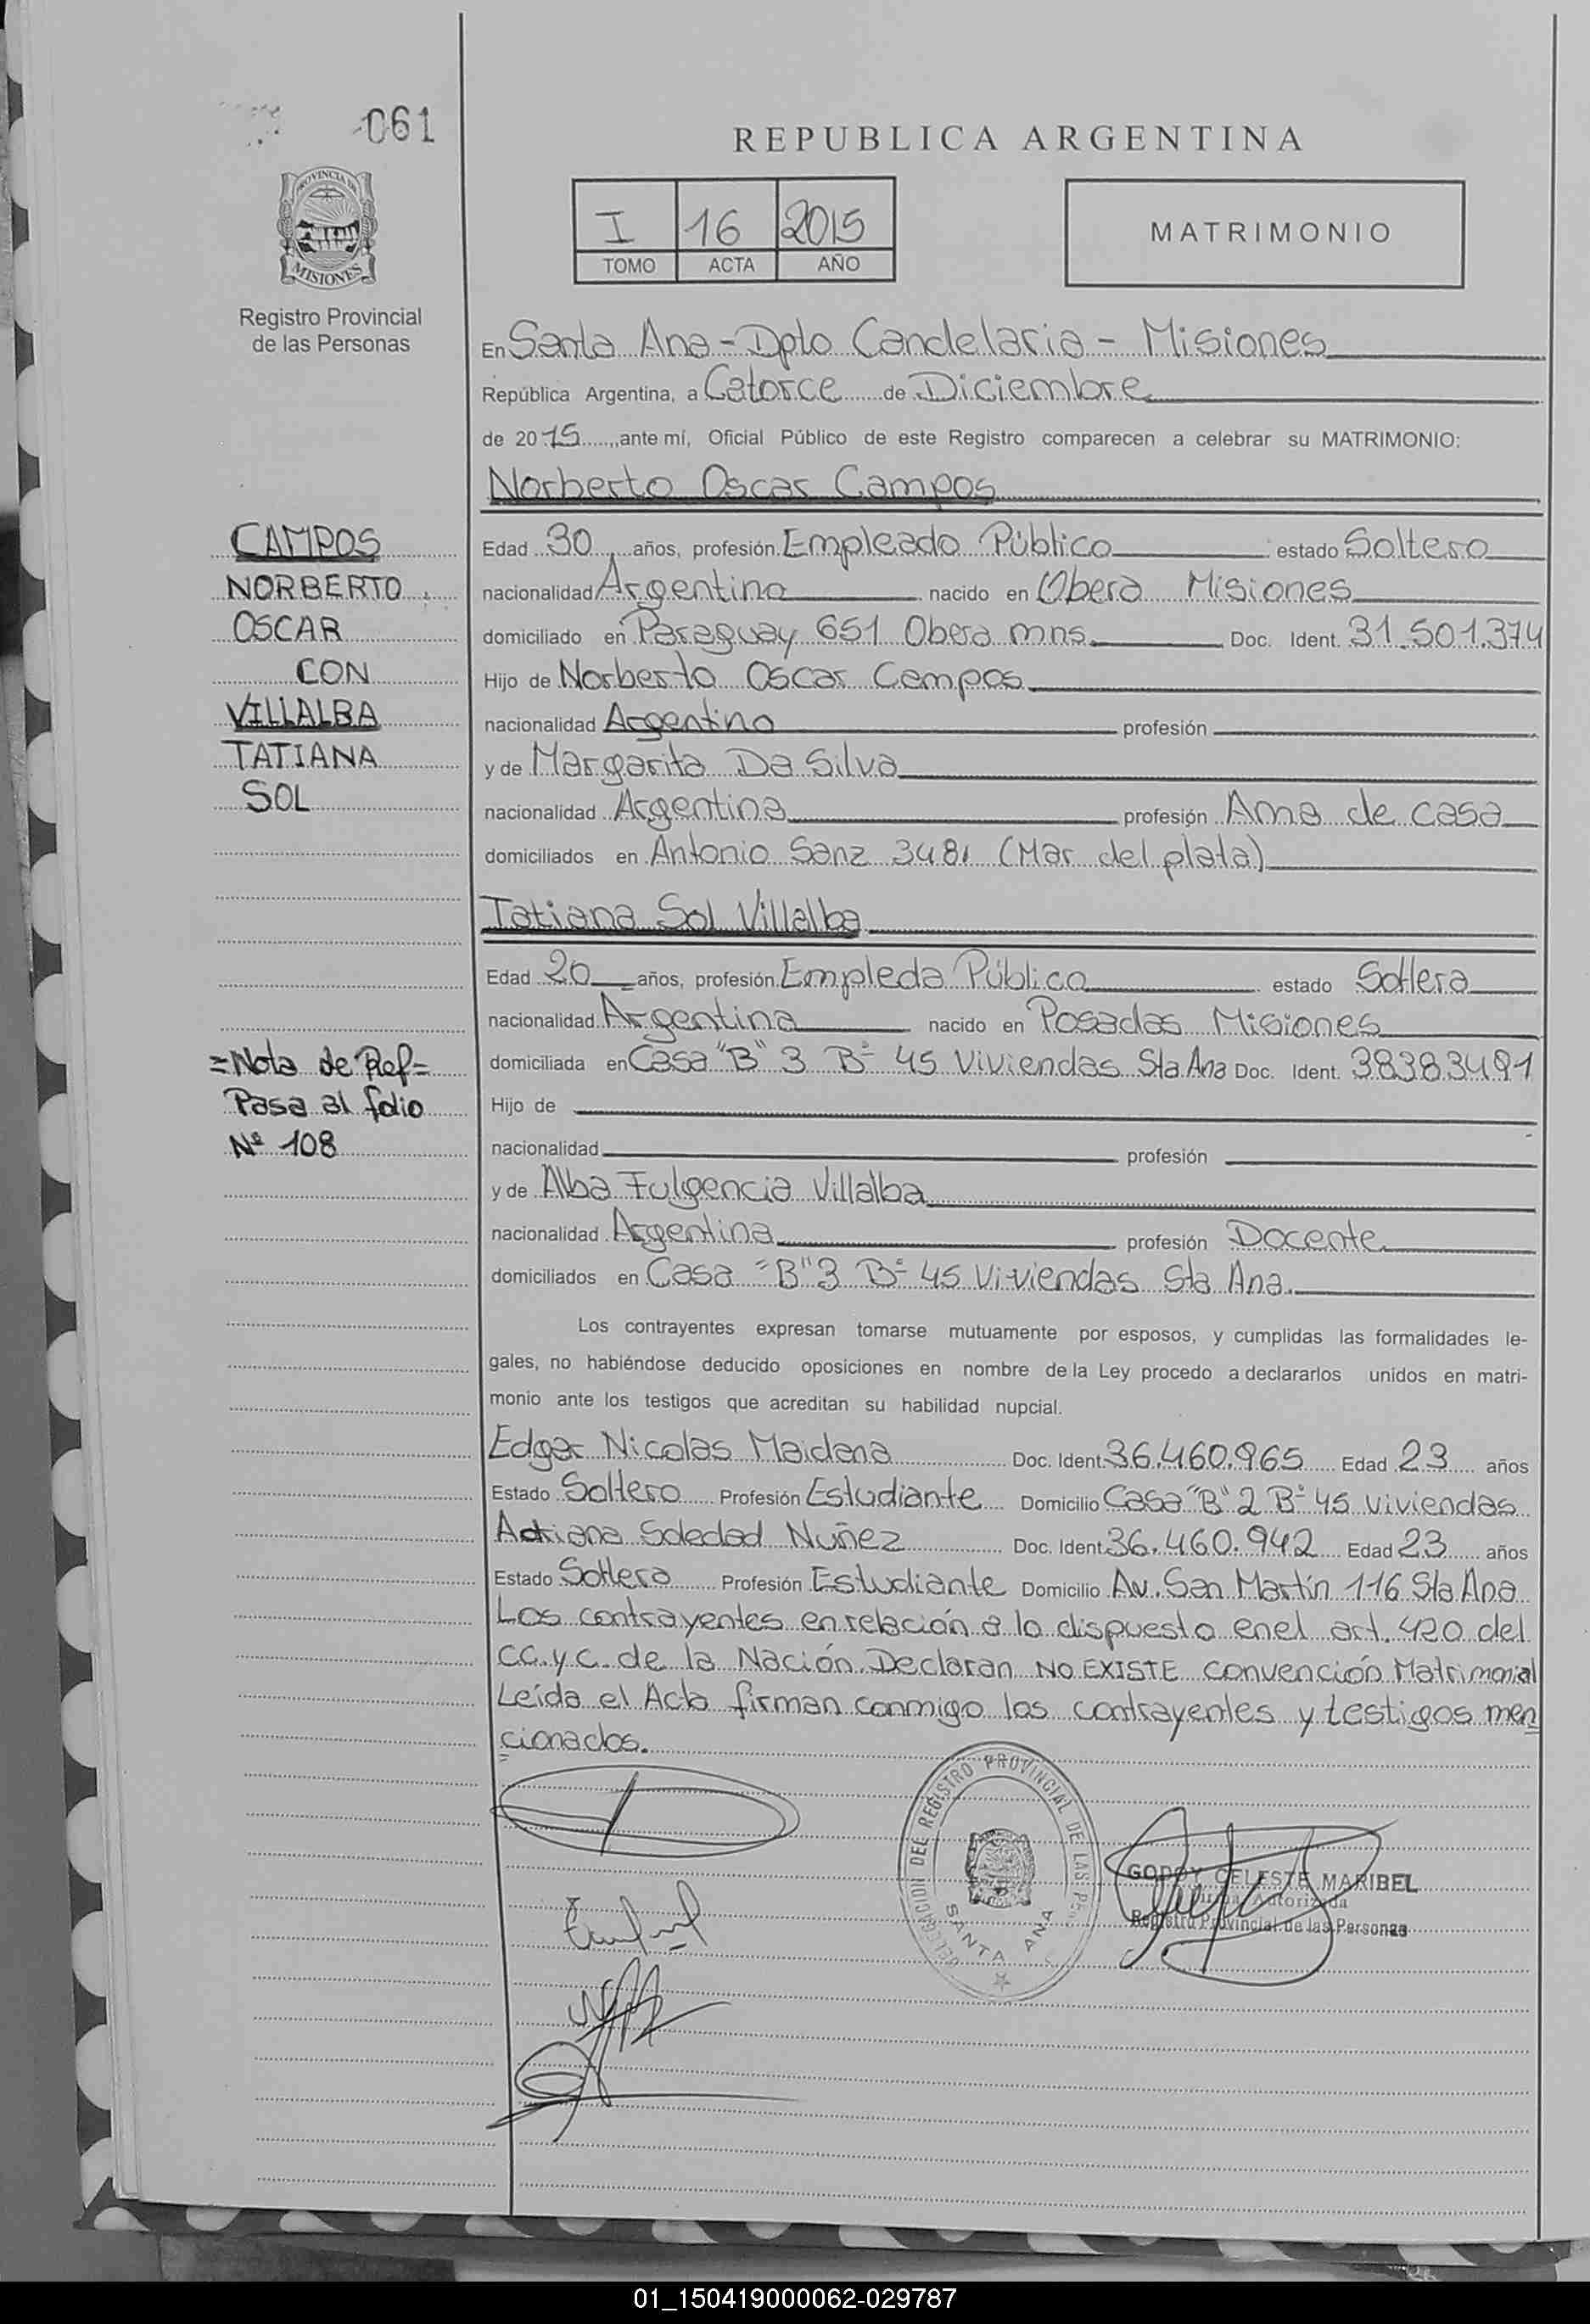 061
PROVINCIA DE
MISIONES
Registro Provincial
de las Personas
REPUBLICA ARGENTINA
I 16 2015
TOMO ACTA AÑO
MATRIMONIO
En Santa Ana - Dpto Candelaria - Misiones
República Argentina, a Catorce de Diciembre
de 2015, ante mí, Oficial Público de este Registro comparecen a celebrar su MATRIMONIO:
Norberto Oscar Campos
Edad 30 años, profesión Empleado Público estado Soltero
nacionalidad Argentina nacido en Oberá Misiones
domiciliado en Paraguay 651 Obera mns. Doc. Ident. 31.501.374
Hijo de Norberto Oscar Campos
nacionalidad Argentino profesión
y de Margarita Da Silva
nacionalidad Argentina profesión Ama de casa
domiciliados en Antonio Sanz 3481 (Mar del plata)
CAMPOS
NORBERTO
OSCAR
CON
VILLALBA
TATIANA
SOL
Tatiana Sol Villalba
Edad 20 años, profesión Empleda Público estado Soltera
nacionalidad Argentina nacido en Posadas Misiones
domiciliada en Casa "B" 3 Bº 45 Viviendas Sta Ana Doc. Ident. 38383491
Hijo de
nacionalidad profesión
y de Alba Fulgencia Villalba
nacionalidad Argentina profesión Docente
domiciliados en Casa "B" 3 Bº 45 Viviendas Sta Ana.
=Nota de Ref=
Pasa al folio
Nº 108
Los contrayentes expresan tomarse mutuamente por esposos, y cumplidas las formalidades le-
gales, no habiéndose deducido oposiciones en nombre de la Ley procedo a declararlos unidos en matri-
monio ante los testigos que acreditan su habilidad nupcial.
Edgar Nicolas Maidana Doc. Ident. 36.460.965 Edad 23 años
Estado Soltero Profesión Estudiante Domicilio Casa "B" 2 Bº 45 viviendas
Adriana Soledad Nuñez Doc. Ident. 36.460.942 Edad 23 años
Estado Soltera Profesión Estudiante Domicilio Av. San Martín 116 Sta Ana
Los contrayentes en relación a lo dispuesto en el art. 420 del
CC. y C. de la Nación. Declaran NO EXISTE convención Matrimonial
Leída el Acta firman conmigo los contrayentes y testigos men
cionados.
DELEGACION DEL REGISTRO PROVINCIAL DE LAS PE
SANTA ANA
GODOY CELESTE MARIBEL
Firma Autorizada
Registro Provincial de las Personas
01_150419000062-029787